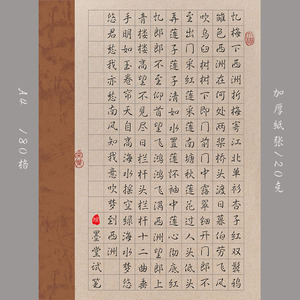 加厚纸张120克
忆梅下西洲折梅寄江北单衫杏子红双鬓鸦
雏色西洲在何处两桨桥头渡日暮伯劳飞风
吹乌臼树树下即门前门中露翠钿开门郎不
至出门采红莲采莲南塘秋莲花过人头低头
弄莲子莲子清如水置莲怀袖中莲心彻底红
忆郎郎不至仰首望飞鸿鸿飞满西洲望郎上
青楼楼高望不见尽日栏杆头栏杆十二曲垂
手明如玉卷帘天自高海水摇空绿海水梦悠
悠君愁我亦愁南风知我意吹梦到西洲
墨堂试笔
A4 180格